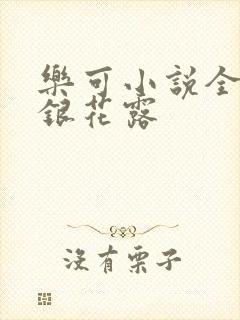 樂可小說全
銀花露
沒有栗子